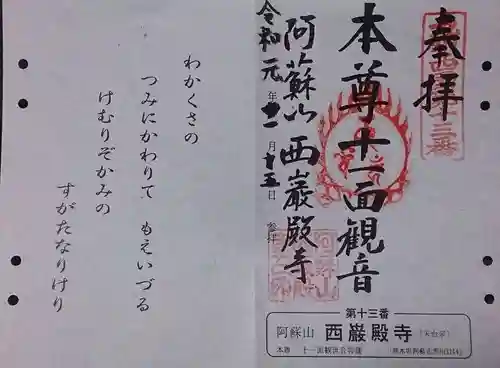 奉拝
本尊十一面観音
阿蘇山 西巌殿寺
令和元年十一月十五日 参拝
わかくさの
つみにかわりて もえいづる
けむりぞかみの
すがたなりけり
第十三番
阿蘇山 西巖殿寺 (天台宗)
本尊 十一面観世音菩薩